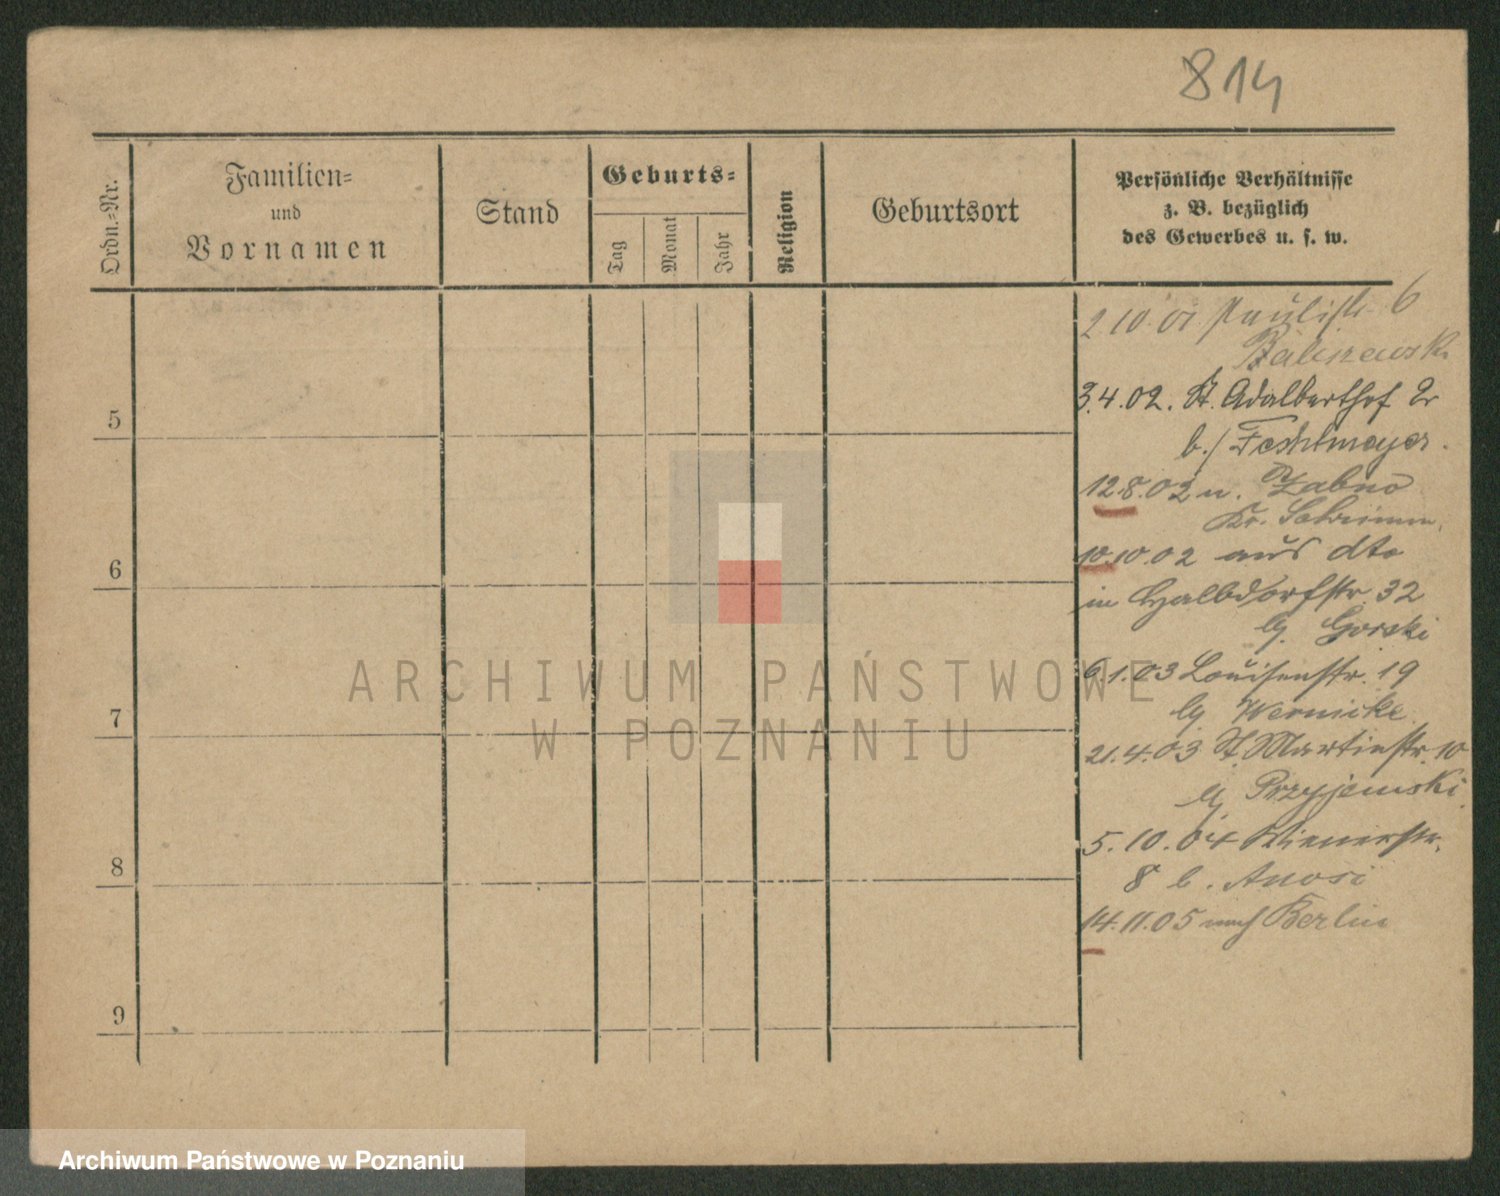 814
Ordn.-Nr.
Familien-
und
Vornamen
Stand
Geburts-
Tag
Monat
Jahr
Religion
Geburtsort
Persönliche Verhältnisse
z. B. bezüglich
des Gewerbes u. s. w.
2.10.01 Paulistr. 6
3.4.02. St. Adalberthof
5
b./
12.8.02 n. Zabno
Kr. Schrimm.
10.10.02 aus dto
6
in Halbdorfstr. 32
Gorski
6.1.03 Louisenstr. 19
Wernicke
7
21.4.03 St. Martinstr. 10
Przyjemski
5.10.04 Wienerstr.
8
8 b. Anosi
14.11.05 nach Berlin
9
ARCHIWUM PAŃSTWOWE
W POZNANIU
Archiwum Państwowe w Poznaniu